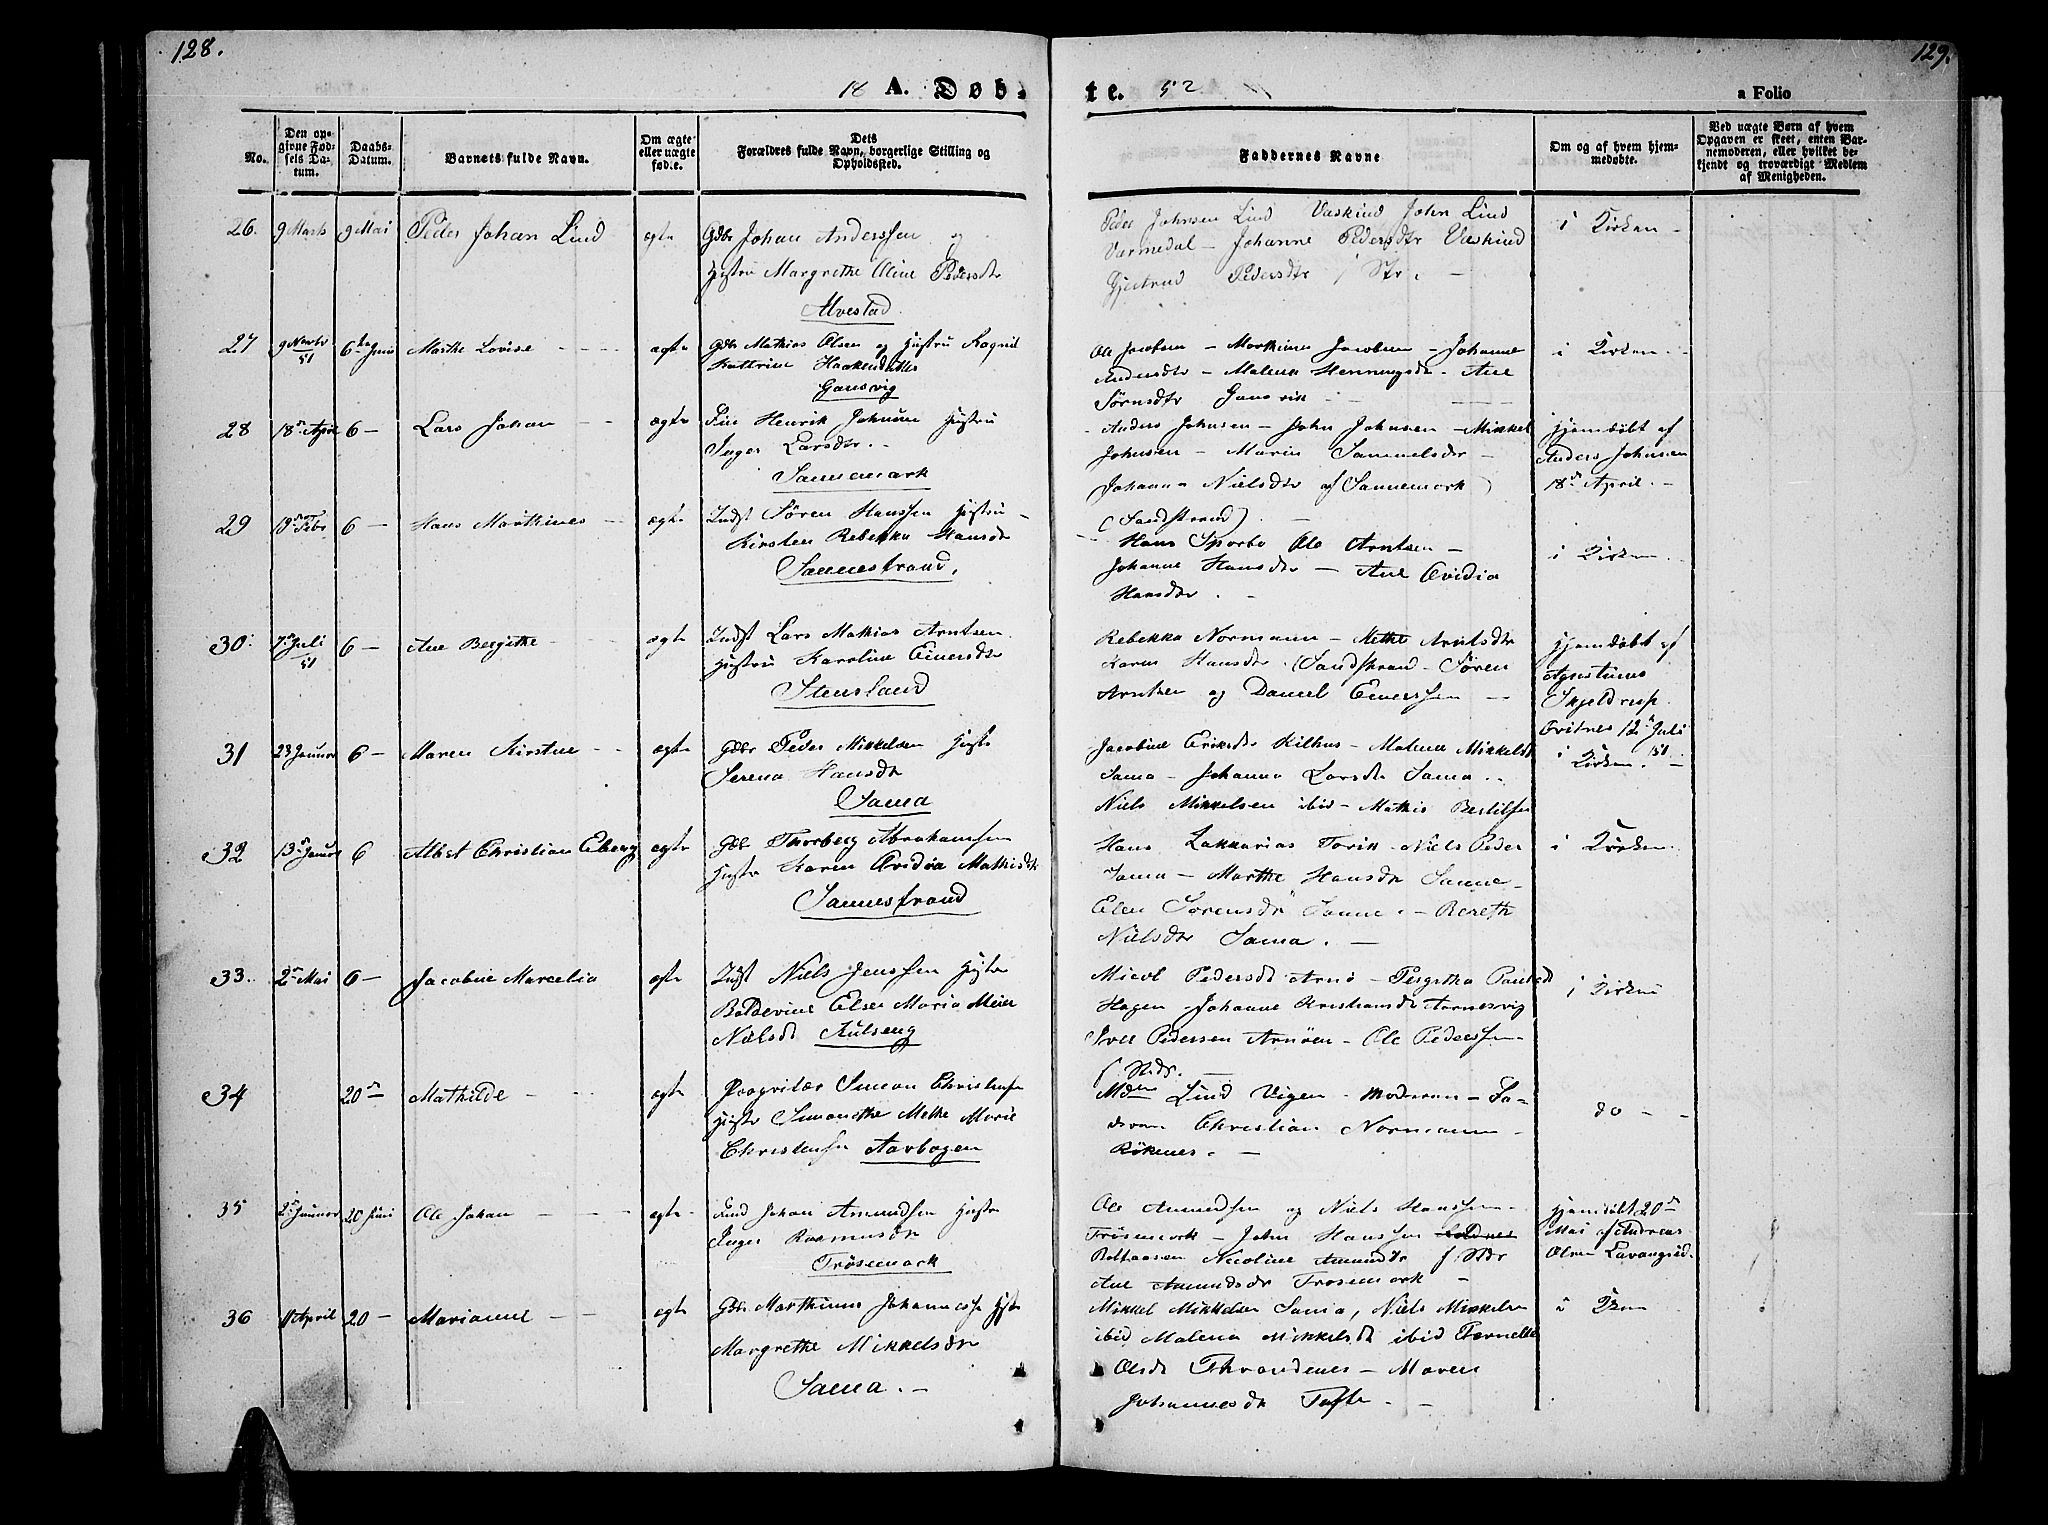 128.
129.
18 A. Døb-
te. 52
a Folio
No.
Den op-
givne Fød-
sels Da-
tum.
Daabs-
Datum.
Barnets fulde Navn.
Om ægte
eller uægte
føde.
Dets
Forældres fulde Navn, borgerlige Stilling og
Opholdssted.
Faddernes Navne
Om og af hvem hjem-
medøbte.
Ved uægte Børn af hvem
Opgaven er skeet, enten Bar-
nemoderen, eller hvilket be-
kjendt og troværdigt Medlem
af Menigheden.
26. 9 Marts 9 Mai Peder Johan Lind ægte Gdbr Johan Anderssen og
Hustru Margrethe Oline Pedersdtr
Alvestad
Peder Johnsen Lind Vaskind John Lind
Varmedal - Johanne Pedersdtr Vaskind
Gjertrud Pedersdtr Str. -
i Kirken -
27 9 Novbr 51 6te Juni Marthe Lovise - ægte Gdbr Mathias Olsen og Hustru Ragnil
Kattrine Haakensdatter
Gansvig
Ole Jacobsen - Morthinus Jacobsen - Johanne
Andersdtr - Malena Henningsdtr - Ane
Sørnsdtr Gansvik
i Kirken -
28 18de April 6 - Lars Johan - ægte Fin Henrik Johnsen Hustru
Inger Larsdtr. -
Sannemark
Anders Johnsen - John Johnsen - Mikkel
Johnsen - Marin Sammelsdtr -
Johanna Nielsdtr af Sannemork
hjemdøbt af
Anders Johnsen
18de April. -
29 19de Febr 6 - Hans Marthines - ægte Indst Søren Hanssen Hustru -
Kirsten Rebekka Hansdtr
Sannestrand.
(Sandstrand)
Hans Ole Arntsen -
Johanne Hansdtr - Ane Ovidia
Hansdtr. -
i Kirken
30. 7de Juli 51 6 - Ane Bergithe - ægte Indst Lars Mathias Arntsen
Hustru Karoline Einersdtr
Stensland
Rebekka Normann - Methe Arntsdtr
Karen Hansdtr. Sandstrand - Søren
Arntsen og Daniel Einerssen -
hjemdøbt af
Skjeldrup
12te Juli
51 -
31 23 Januar 6 - Maren Kirstine - ægte Gdbr Peder Mikkelsen Hustr
Serena Hansdtr
Sama
Jacobine Eriksdtr Kilhus - Malene Mikkelsd
Sama - Johanna Larsdtr Sama. -
Niels Mikkelsen ibid - Mathis Bertilsen
i Kirken.
32 13de Januar 6 Albert Christian Eberg ægte Gdbr Thorberg Abrahamsen
Hustr Karen Ovidia Mathisdtr
Sannestrand
Hans Zakkarias Torik - Niels Peder
Sama - Marthe Hansdtr Sanne -
Elen Sørensdtr Sanne. - Bereth
Nielsdtr Sama. -
i Kirken.
33. 2de Mai 6 - Jacobine Marcelia ægte Indst Niels Jenssen Hustr
Boldevine Elser Maria Meier
Nielsdtr Kulseng
Pedersdt Arnø -
Hagen - Johanne Kristiansdtr Aarnesvig
Iver Pedersen Arnøen - Ole Pederssen -
i Kirken
34 20de Mathilde - ægte Propritær Simon Christensen
Hustr Simonethe Methe Marie
Christensen Aarbogen
Mdm Lind Vigen - Moderen - Fa-
deren Christian Normann -
Røkenes. -
do - -
35 2de Januar 20 Juni Ole Johan - ægte Find Johan Amundsen Hustr
Inger Rasmusdtr
Trøsemark
Ole Amundsen og Niels Hanssen -
Trøsemork - John Hanssen
Nicoline Amundsdtr f Stdr
Ane Amundsdtr Trosemork -
hjemdøbt 20de
Mai af Andreas
Olsen Lavangseid.
36 11 April 20 - Marianne - ægte Gdbr Marthinus Johannessen Hustr
Margrethe Mikkelsdtr
Sama. -
Mikkel Mikkelsen Sama, Niels Mikkelsen
ibid Malena Mikkelsdt ibid Pernelle
Olsdt Throndenes - Maren
Johannesdtr Tofte. -
i Kken